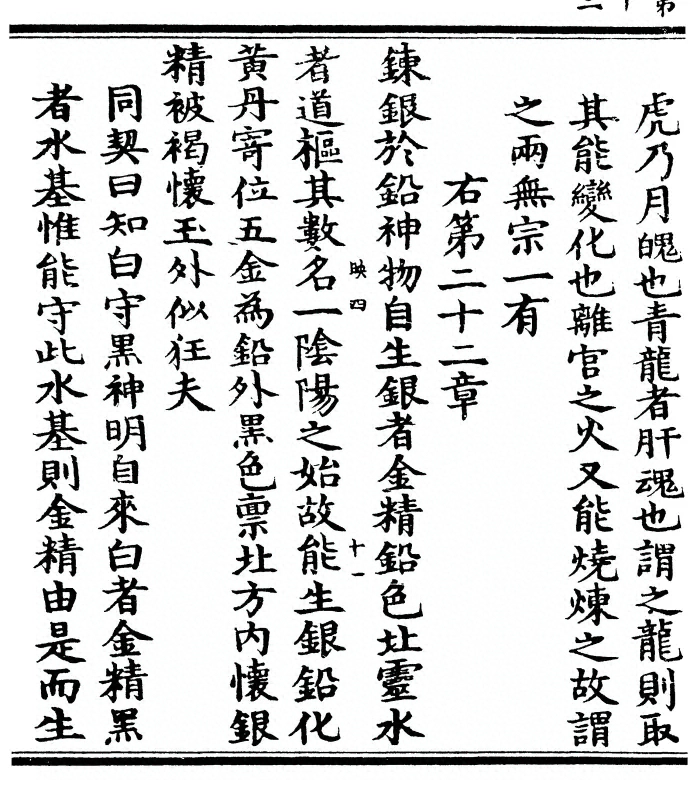 虎乃月魄也青龍者肝魂也謂之龍則取
其能變化也離宮之火又能燒煉之故謂
之兩無宗一有
右第二十二章
鍊銀於鉛神物自生銀者金精鉛色北靈水
映四
十一
者道樞其數名一陰陽之始故能生銀鉛化
黃丹寄位五金為鉛外黑色禀北方內懷銀
精被褐懷玉外似狂夫
同契曰知白守黑神明自來白者金精黑
者水基惟能守此水基則金精由是而生